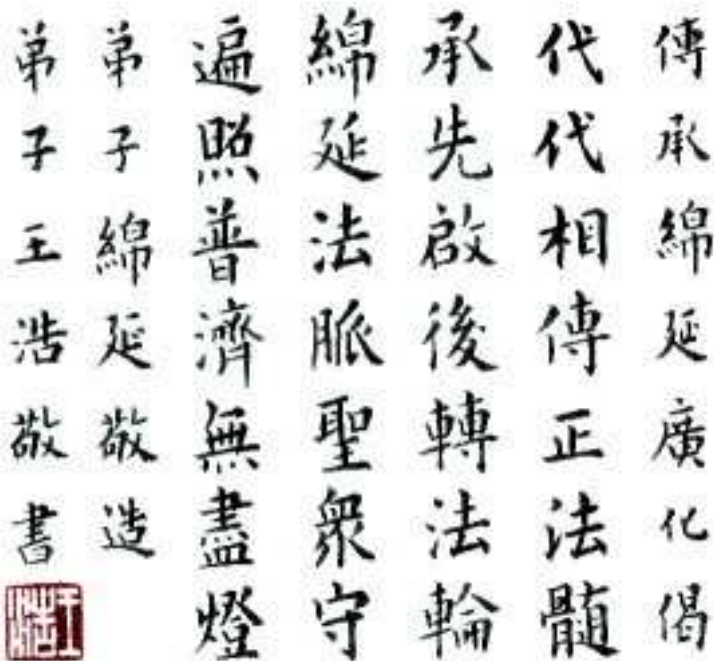 傳承綿延廣化偈
代代相傳正法髓
承先啟後轉法輪
綿延法脈聖眾守
遍照普濟無盡燈
弟子綿延敬造
弟子王浩敬書
王浩